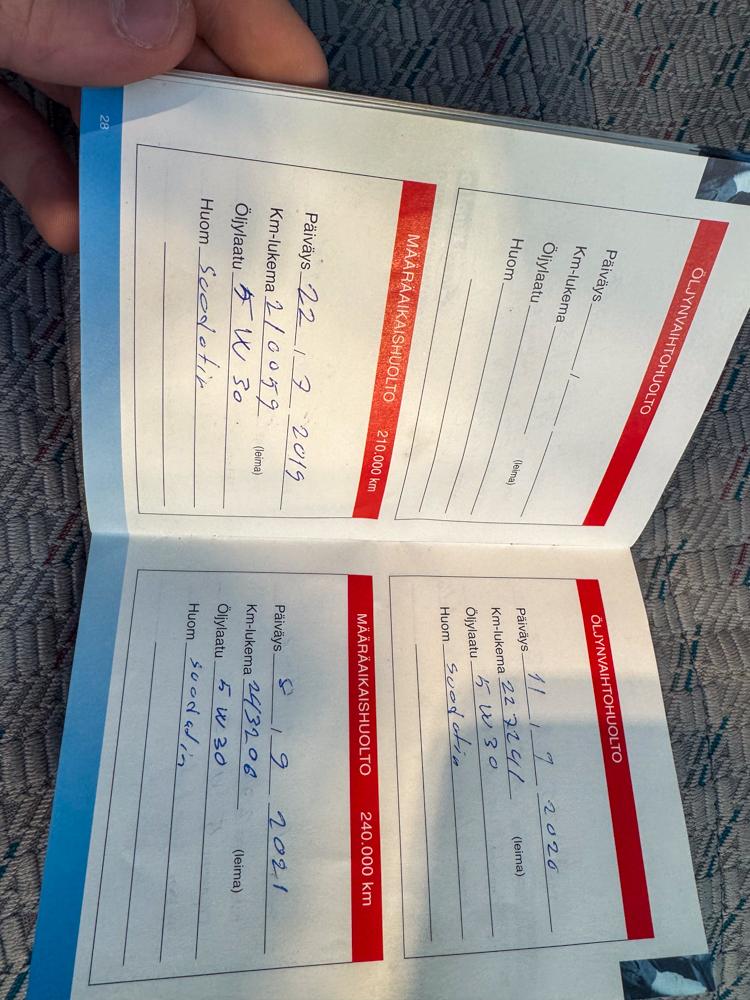 ÖLJYNVAIHTOHUOLTO
Päiväys /
Km-lukema
Öljylaatu (leima)
Huom
MÄÄRÄAIKAISHUOLTO 210.000 km
Päiväys 22 / 7 2019
Km-lukema 210059
Öljylaatu 5 W 30 (leima)
Huom Suodatin
28
ÖLJYNVAIHTOHUOLTO
Päiväys 11 / 9 2020
Km-lukema 227241
Öljylaatu 5 W 30 (leima)
Huom suodatin
MÄÄRÄAIKAISHUOLTO 240.000 km
Päiväys 8 / 9 2021
Km-lukema 243206
Öljylaatu 5 W 30 (leima)
Huom suodatin